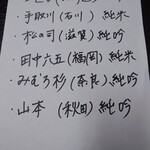 ・手取川(石川)純米
・松の司(滋賀)純吟
・田中六五(福岡)純米
・みむろ杉(奈良)純吟
・山本(秋田)純吟